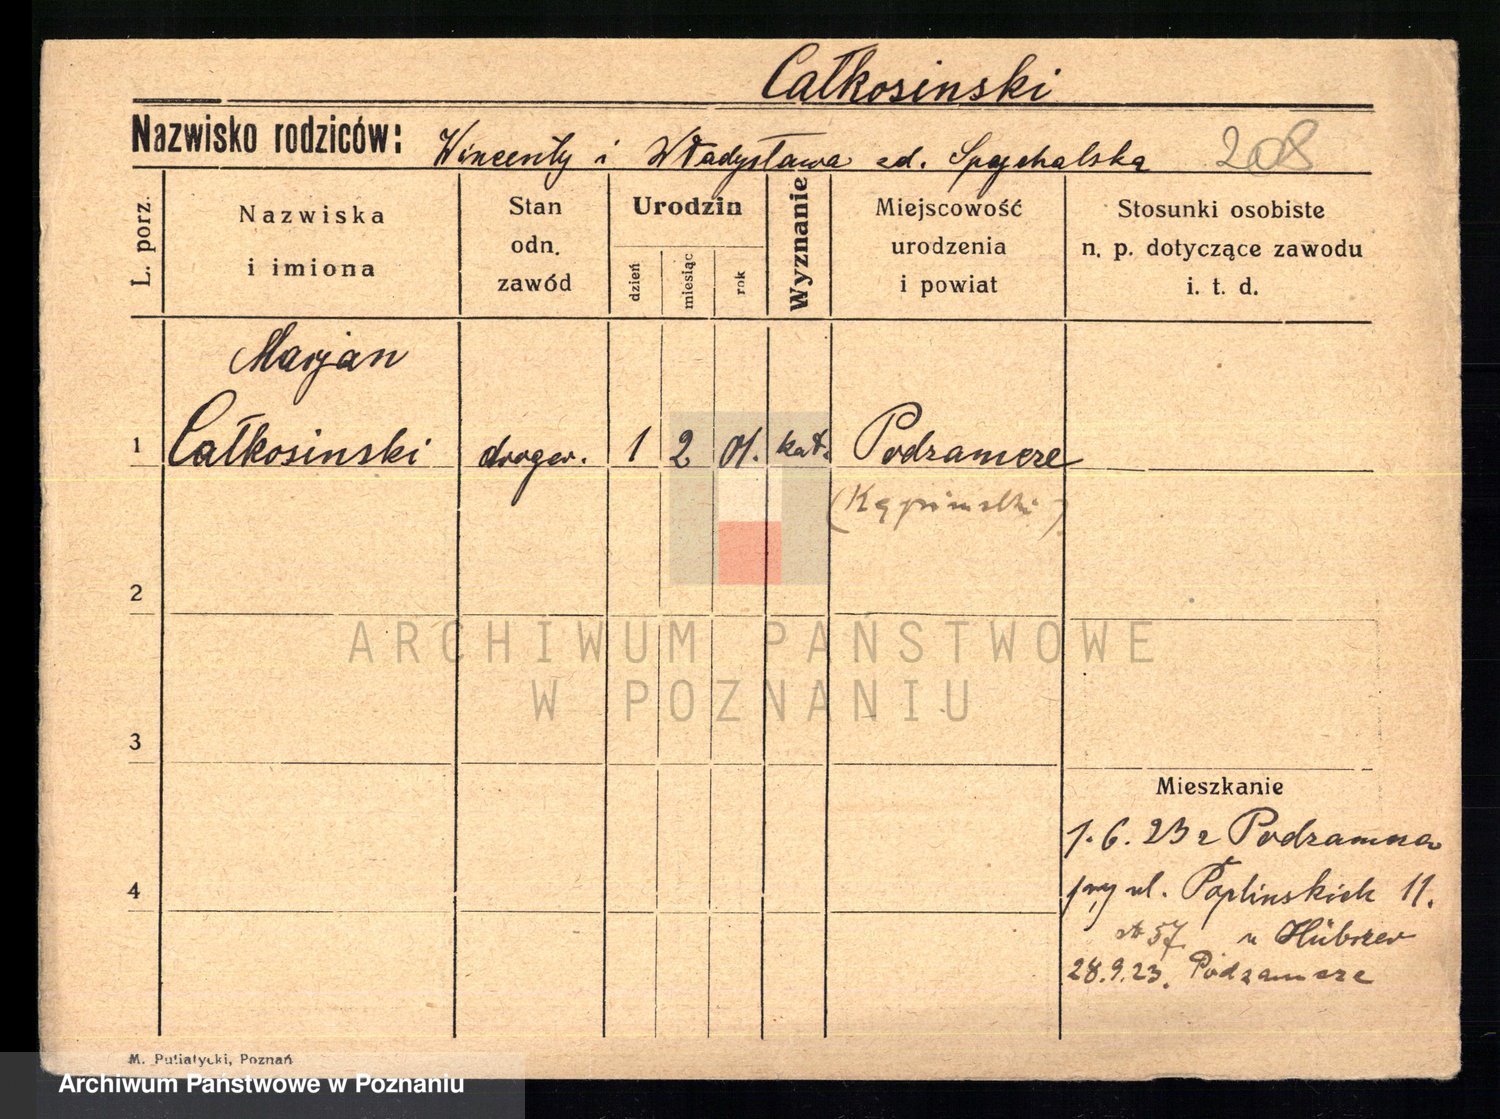 Całkosinski
Nazwisko rodziców: Wincenty i Władysława zd. Spychalska 208
L. porz.
Nazwiska
i imiona
Stan
odn.
zawód
Urodzin
dzień
miesiąc
rok
Wyznanie
Miejscowość
urodzenia
i powiat
Stosunki osobiste
n. p. dotyczące zawodu
i. t. d.
Marjan
1 Całkosinski droger. 1 2 01. kat. Podzamcze
(Kępiński)
2
ARCHIWUM PAŃSTWOWE
W POZNANIU
3
Mieszkanie
1.6.23 z Podzamcza
4
przy ul. Poplinskich 11.
57 u Hübscer
28.9.23. Podzamcze
M. Putiatycki, Poznań
Archiwum Państwowe w Poznaniu